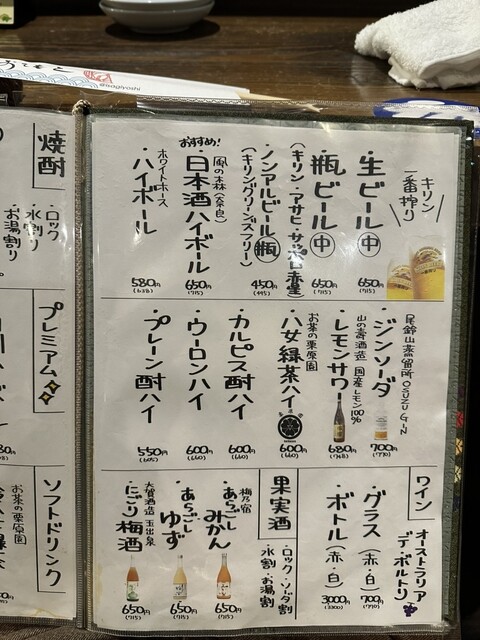 キリン
一番搾り
・生ビール 中
650円
(715)
・瓶ビール 中
(キリン・アサヒ・サッポロ赤星)
650円
(715)
・ノンアルビール 瓶
(キリングリーンズフリー)
450円
(495)
おすすめ!
風の森(奈良)
・日本酒ハイボール
650円
(715)
ホワイトホース
・ハイボール
580円
(638)
尾鈴山蒸留所 OSUZU GIN
・ジンソーダ
700円
(770)
山の壽酒造 国産レモン100%
・レモンサワー
680円
(748)
お茶の栗原園
・八女緑茶ハイ
600円
(660)
・カルピス酎ハイ
600円
(660)
・ウーロンハイ
600円
(660)
・プレーン酎ハイ
550円
(605)
ワイン
オーストラリア
デ・ボルトリ
・グラス(赤・白)
700円
(770)
・ボトル(赤・白)
3000円
(3300)
果実酒
・ロック・ソーダ割
・水割・お湯割
梅乃宿
・あらごしみかん
650円
(715)
・あらごしゆず
650円
(715)
大賀酒造 玉出泉
・にごり梅酒
650円
(715)
焼酎
・ロック
・水割り
・お湯割り
プレミアム
ソフトドリンク
お茶の栗原園